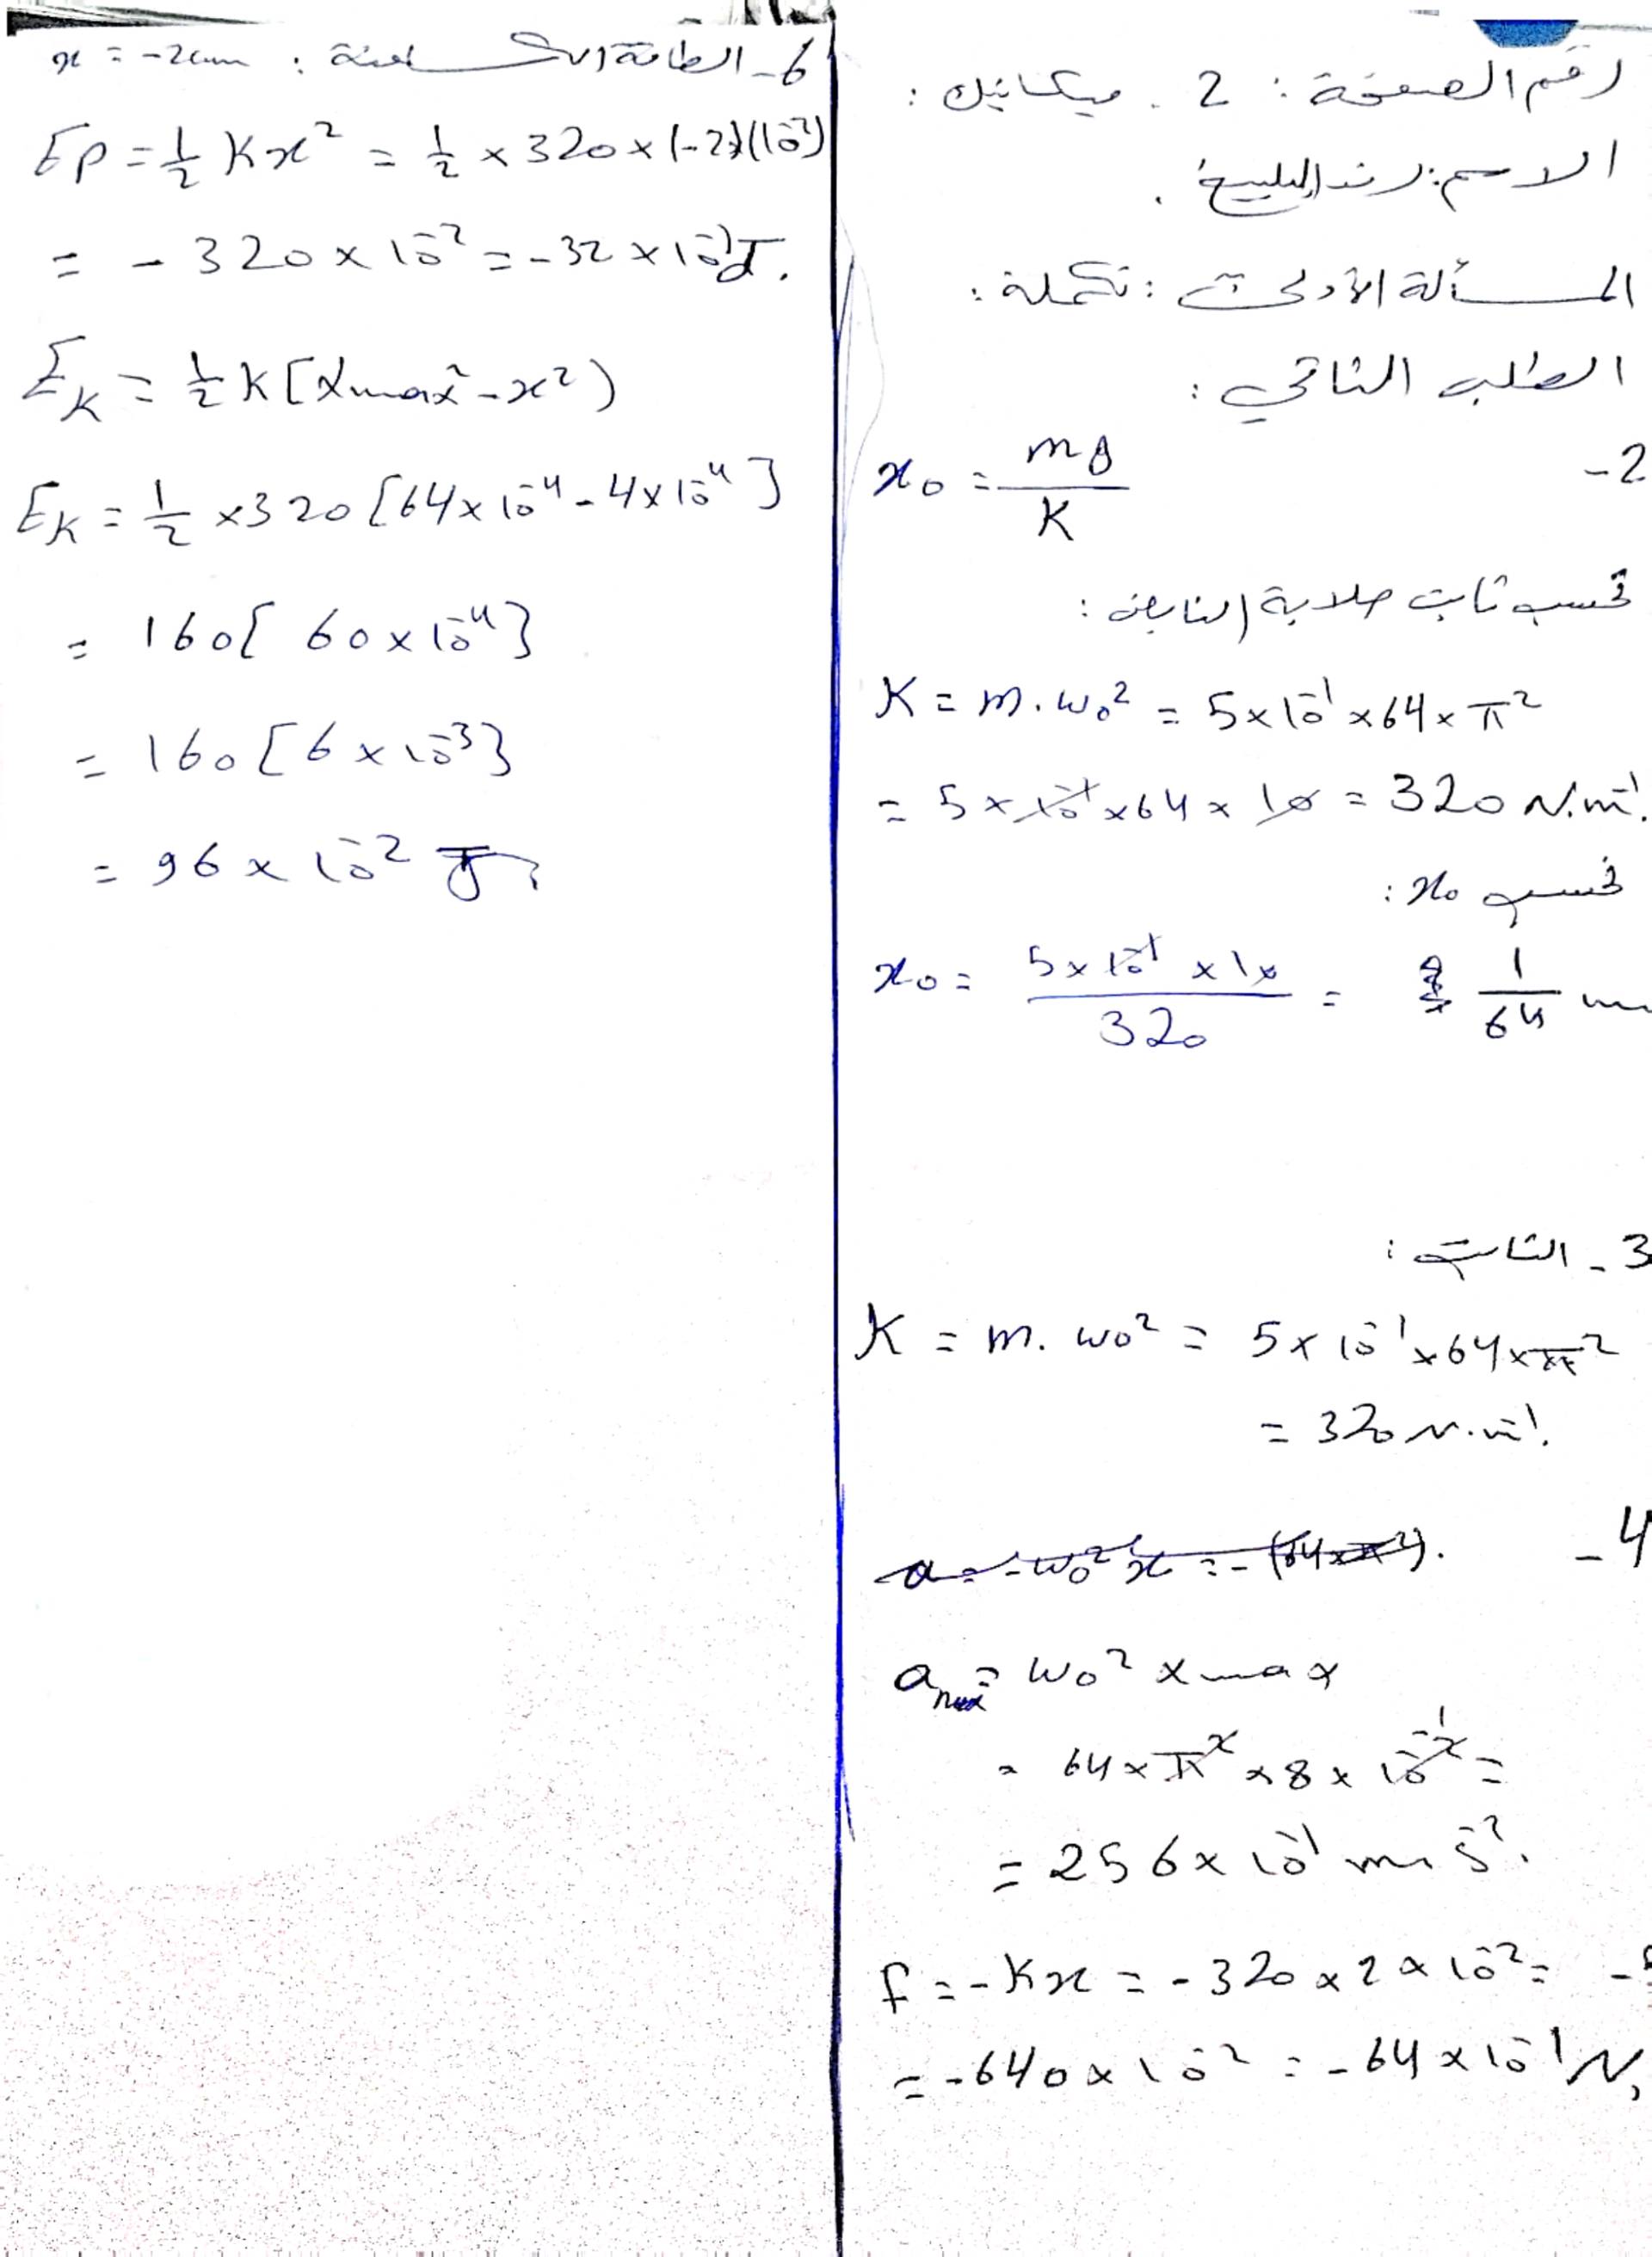 رقم الصفحة : 2 . ميكانيك :
الاسم : رند البليخ .
المسألة الأولى : تكملة :
الطلب الثاني :
2- x₀ = mg / K
نحسب ثابت صلابة النابض :
K = m . ω₀² = 5 × 10⁻¹ × 64 × π²
= 5 × 10⁻¹ × 64 × 10 = 320 N.m⁻¹.
نحسب x₀ :
x₀ = 5 × 10⁻¹ × 10 / 320 = 1/64 m
3 - الثابت :
K = m . ω₀² = 5 × 10⁻¹ × 64 × π²
= 320 N.m⁻¹.
4 - a = -ω₀² x = - (64 × π²).
a max = ω₀² x max
= 64 × π² × 8 × 10⁻² =
= 256 × 10⁻¹ m s⁻².
F = -Kx = -320 × 2 × 10⁻² =
= -640 × 10⁻² = -64 × 10⁻¹ N.
6 - الطاقة الكامنة : x = -2cm
Ep = ½ K x² = ½ × 320 × (-2)(10⁻²)
= - 320 × 10⁻² = -32 × 10⁻¹ J.
E_K = ½ K [X max² - x²)
E_K = ½ × 320 [64 × 10⁻⁴ - 4 × 10⁻⁴]
= 160 [60 × 10⁻⁴]
= 160 [6 × 10⁻³]
= 96 × 10⁻² J